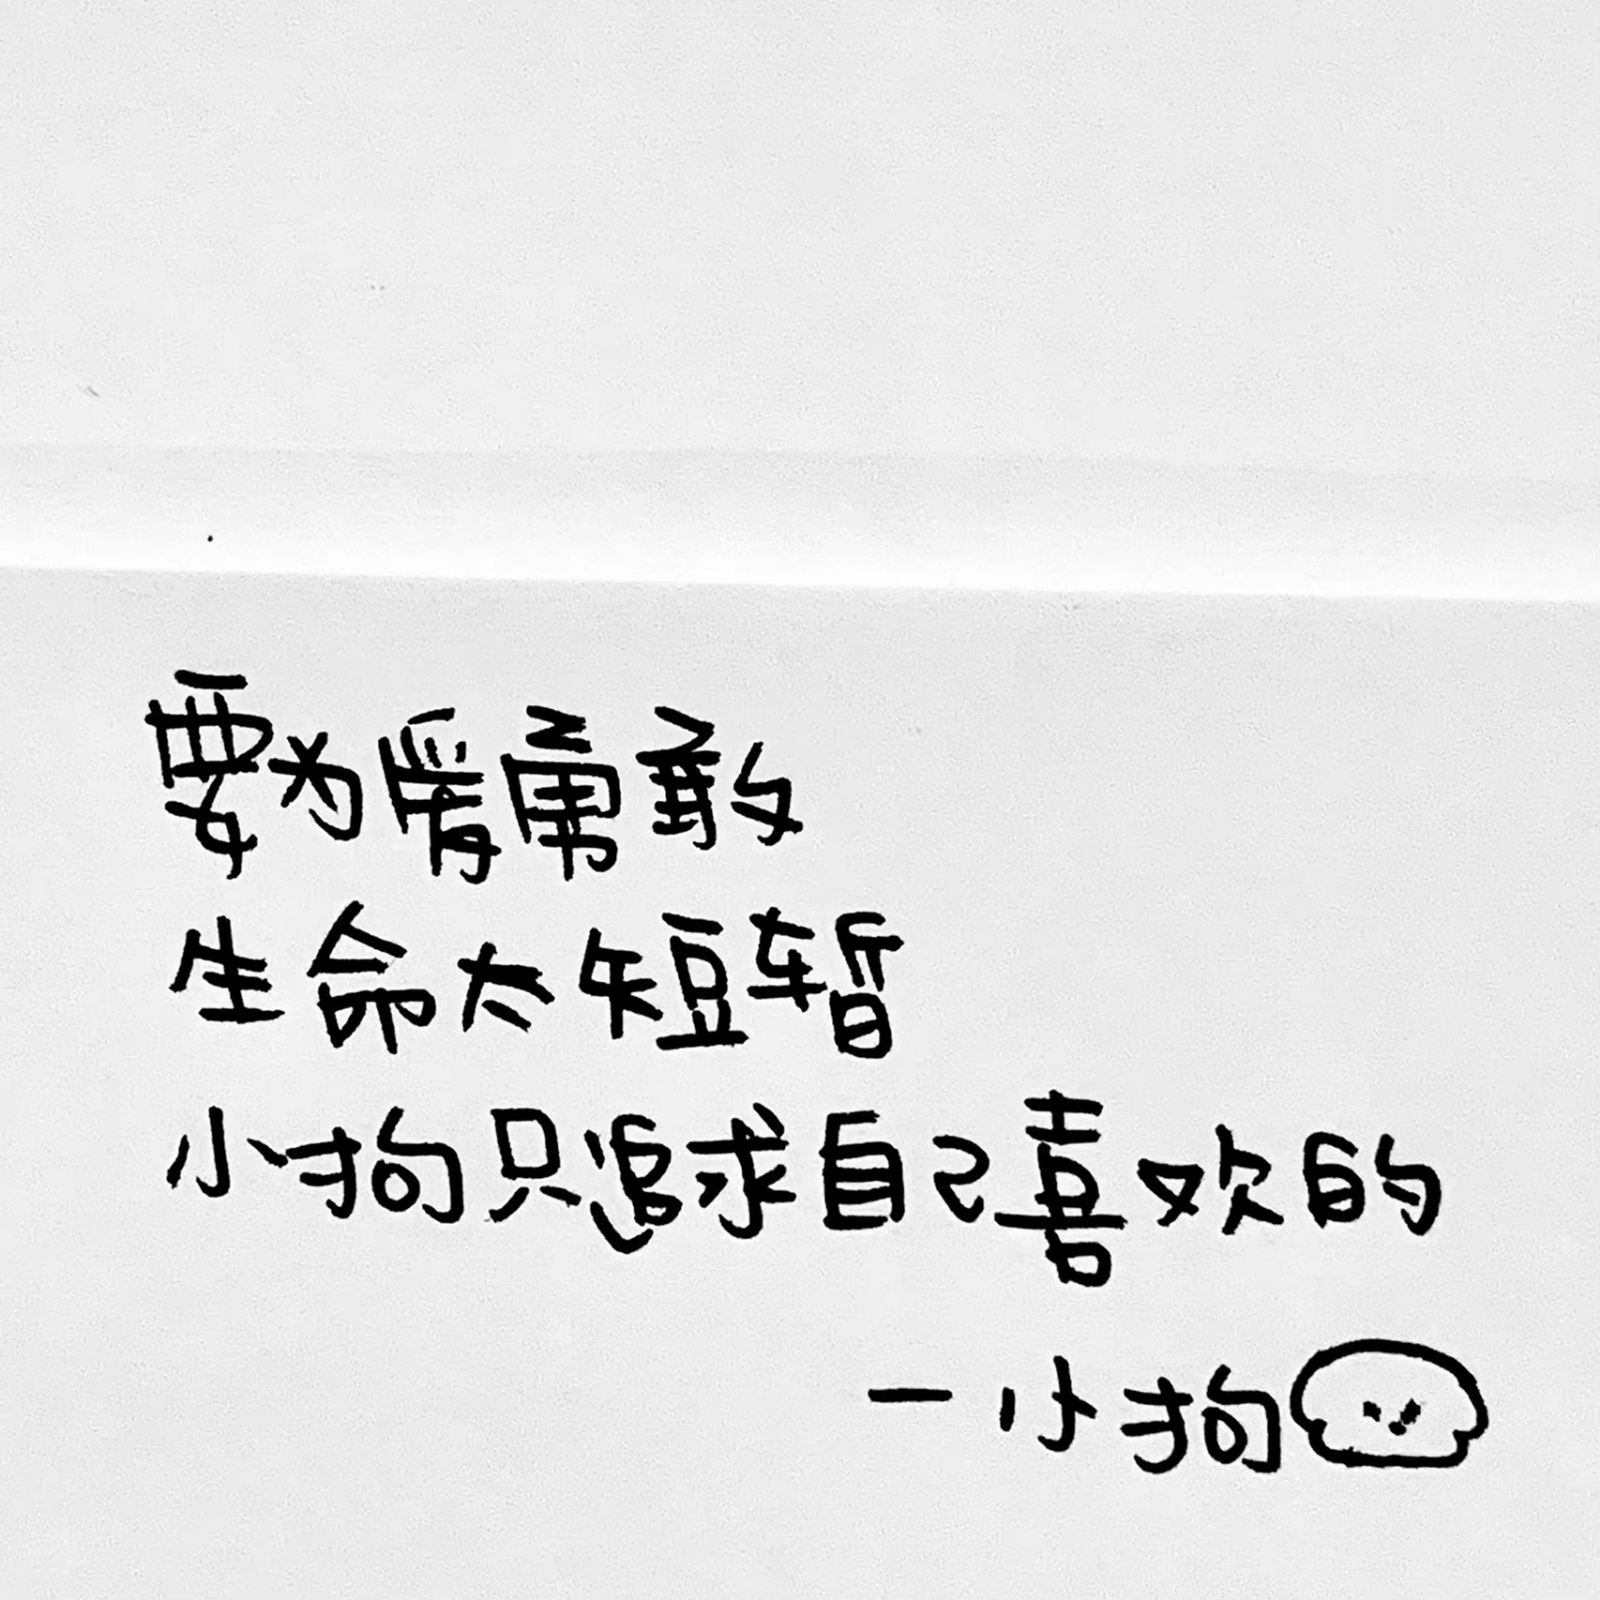 要为爱勇敢
生命太短暂
小狗只追求自己喜欢的
—小狗